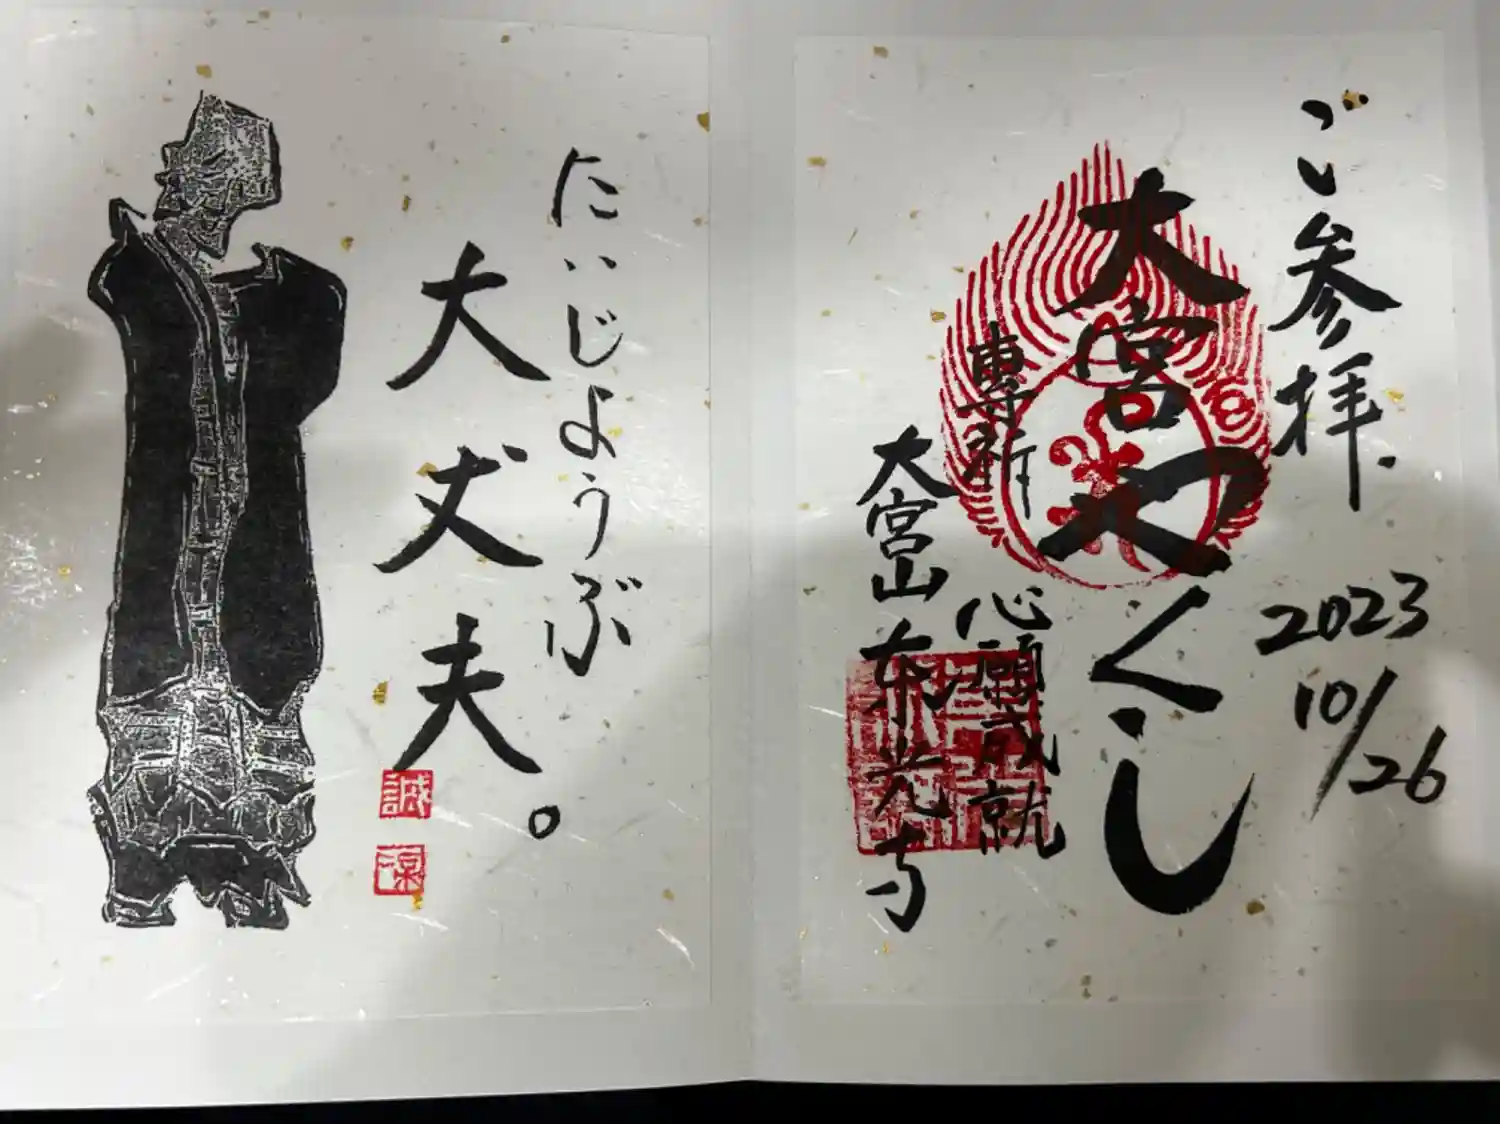 ご参拝.
2023
10/26
大宮やくし
專祈
心願成就
大宮山東光寺
たいじょうぶ
大丈夫。
誠